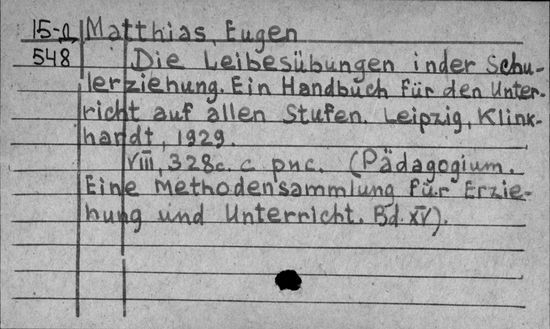 15-a Matthias, Eugen
548 Die Leibesübungen in der Schu-
lerziehung. Ein Handbuch für den Unter-
richt auf allen Stufen. Leipzig, Klink-
hardt, 1929.
VIII, 328c. с рис. (Pädagogium.
Eine Methodensammlung für Erzie-
hung und Unterricht. Bd. XV).